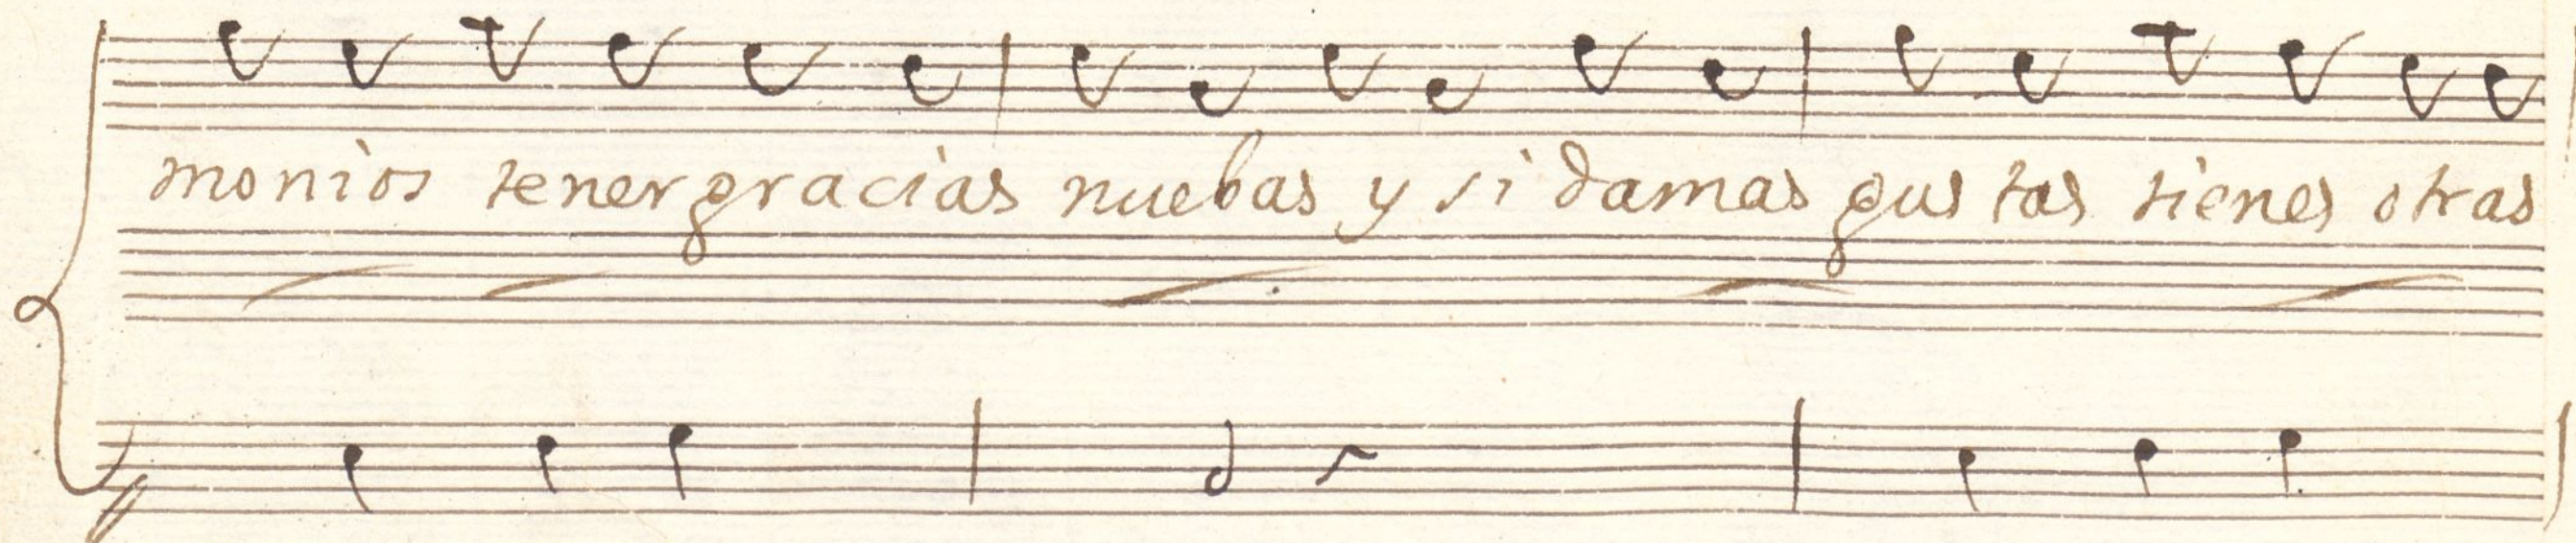 monios tener gracias nuebas y si damas gustas tienes otras